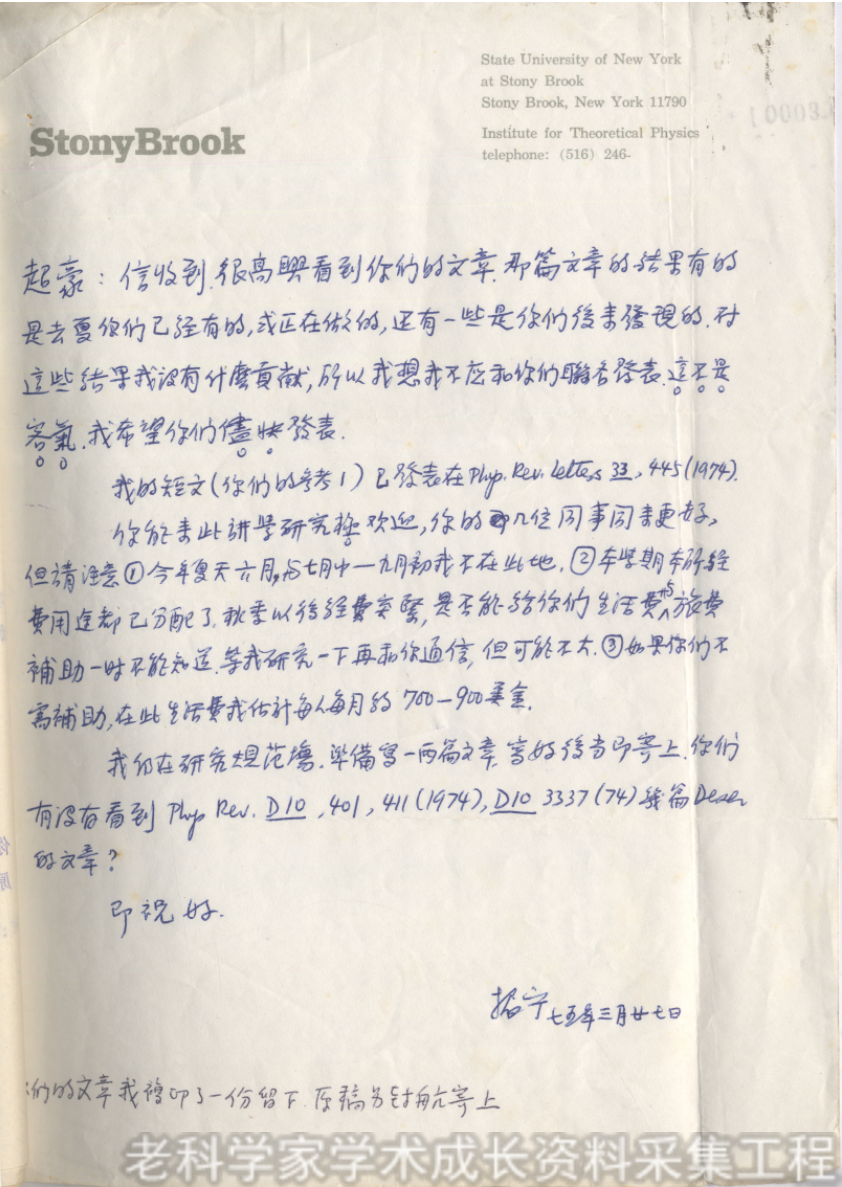 State University of New York
at Stony Brook
Stony Brook, New York 11790
Institute for Theoretical Physics
telephone: (516) 246-
StonyBrook
超豪：信收到.很高興看到你们的文章.那篇文章的结果有的
是去夏你们已经有的,或正在做的,还有一些是你们後来發現的.对
這些结果我没有什麽貢献,所以我想我不应和你们聯名發表.這不是
客氣.我希望你们儘快發表.
我的短文(你们的参考1)已發表在Phys. Rev. Letters 33, 445(1974).
你能来此讲學研究極欢迎,你的几位同事同来更好,
但請注意①今年夏天六月,与七月中—九月初我不在此地.②本學期本所经
費用途都已分配了.秋季以後经費突緊,是否能給你们生活費与旅費
補助一时不能知道.等我研究一下再和你通信,但可能不大.③如果你们不
需補助,在此生活費我估計每人每月约700—900美金.
我仍在研究規范場.準備寫一两篇文章.寫好後当即寄上.你们
有没有看到 Phys Rev. D10, 401, 411(1974), D10 3337(74)幾篇Deser
的文章?
即祝 好.
振宁 七五年三月廿七日
们的文章我複印了一份留下.原稿另封航寄上
老科学家学术成长资料采集工程